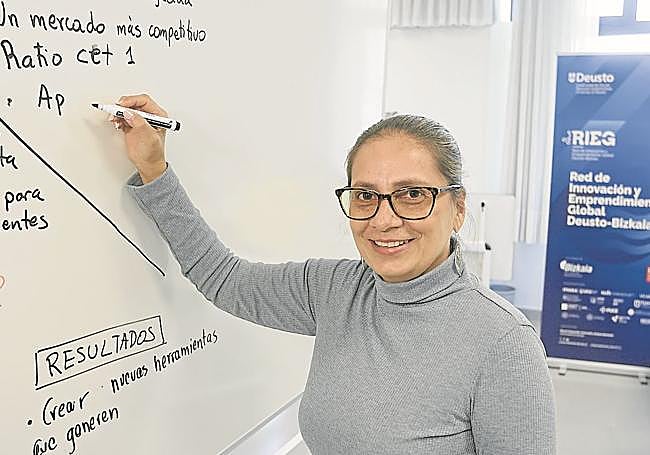 Un mercado más competitivo
Ratio cet 1
• Ap
ta
para
entes
RESULTADOS
• Crear nuevas herramientas
que generen
Deusto
RIEG
Red de
Innovación y
Emprendimie
Global
Deusto-Bizkaia
Bizkaia